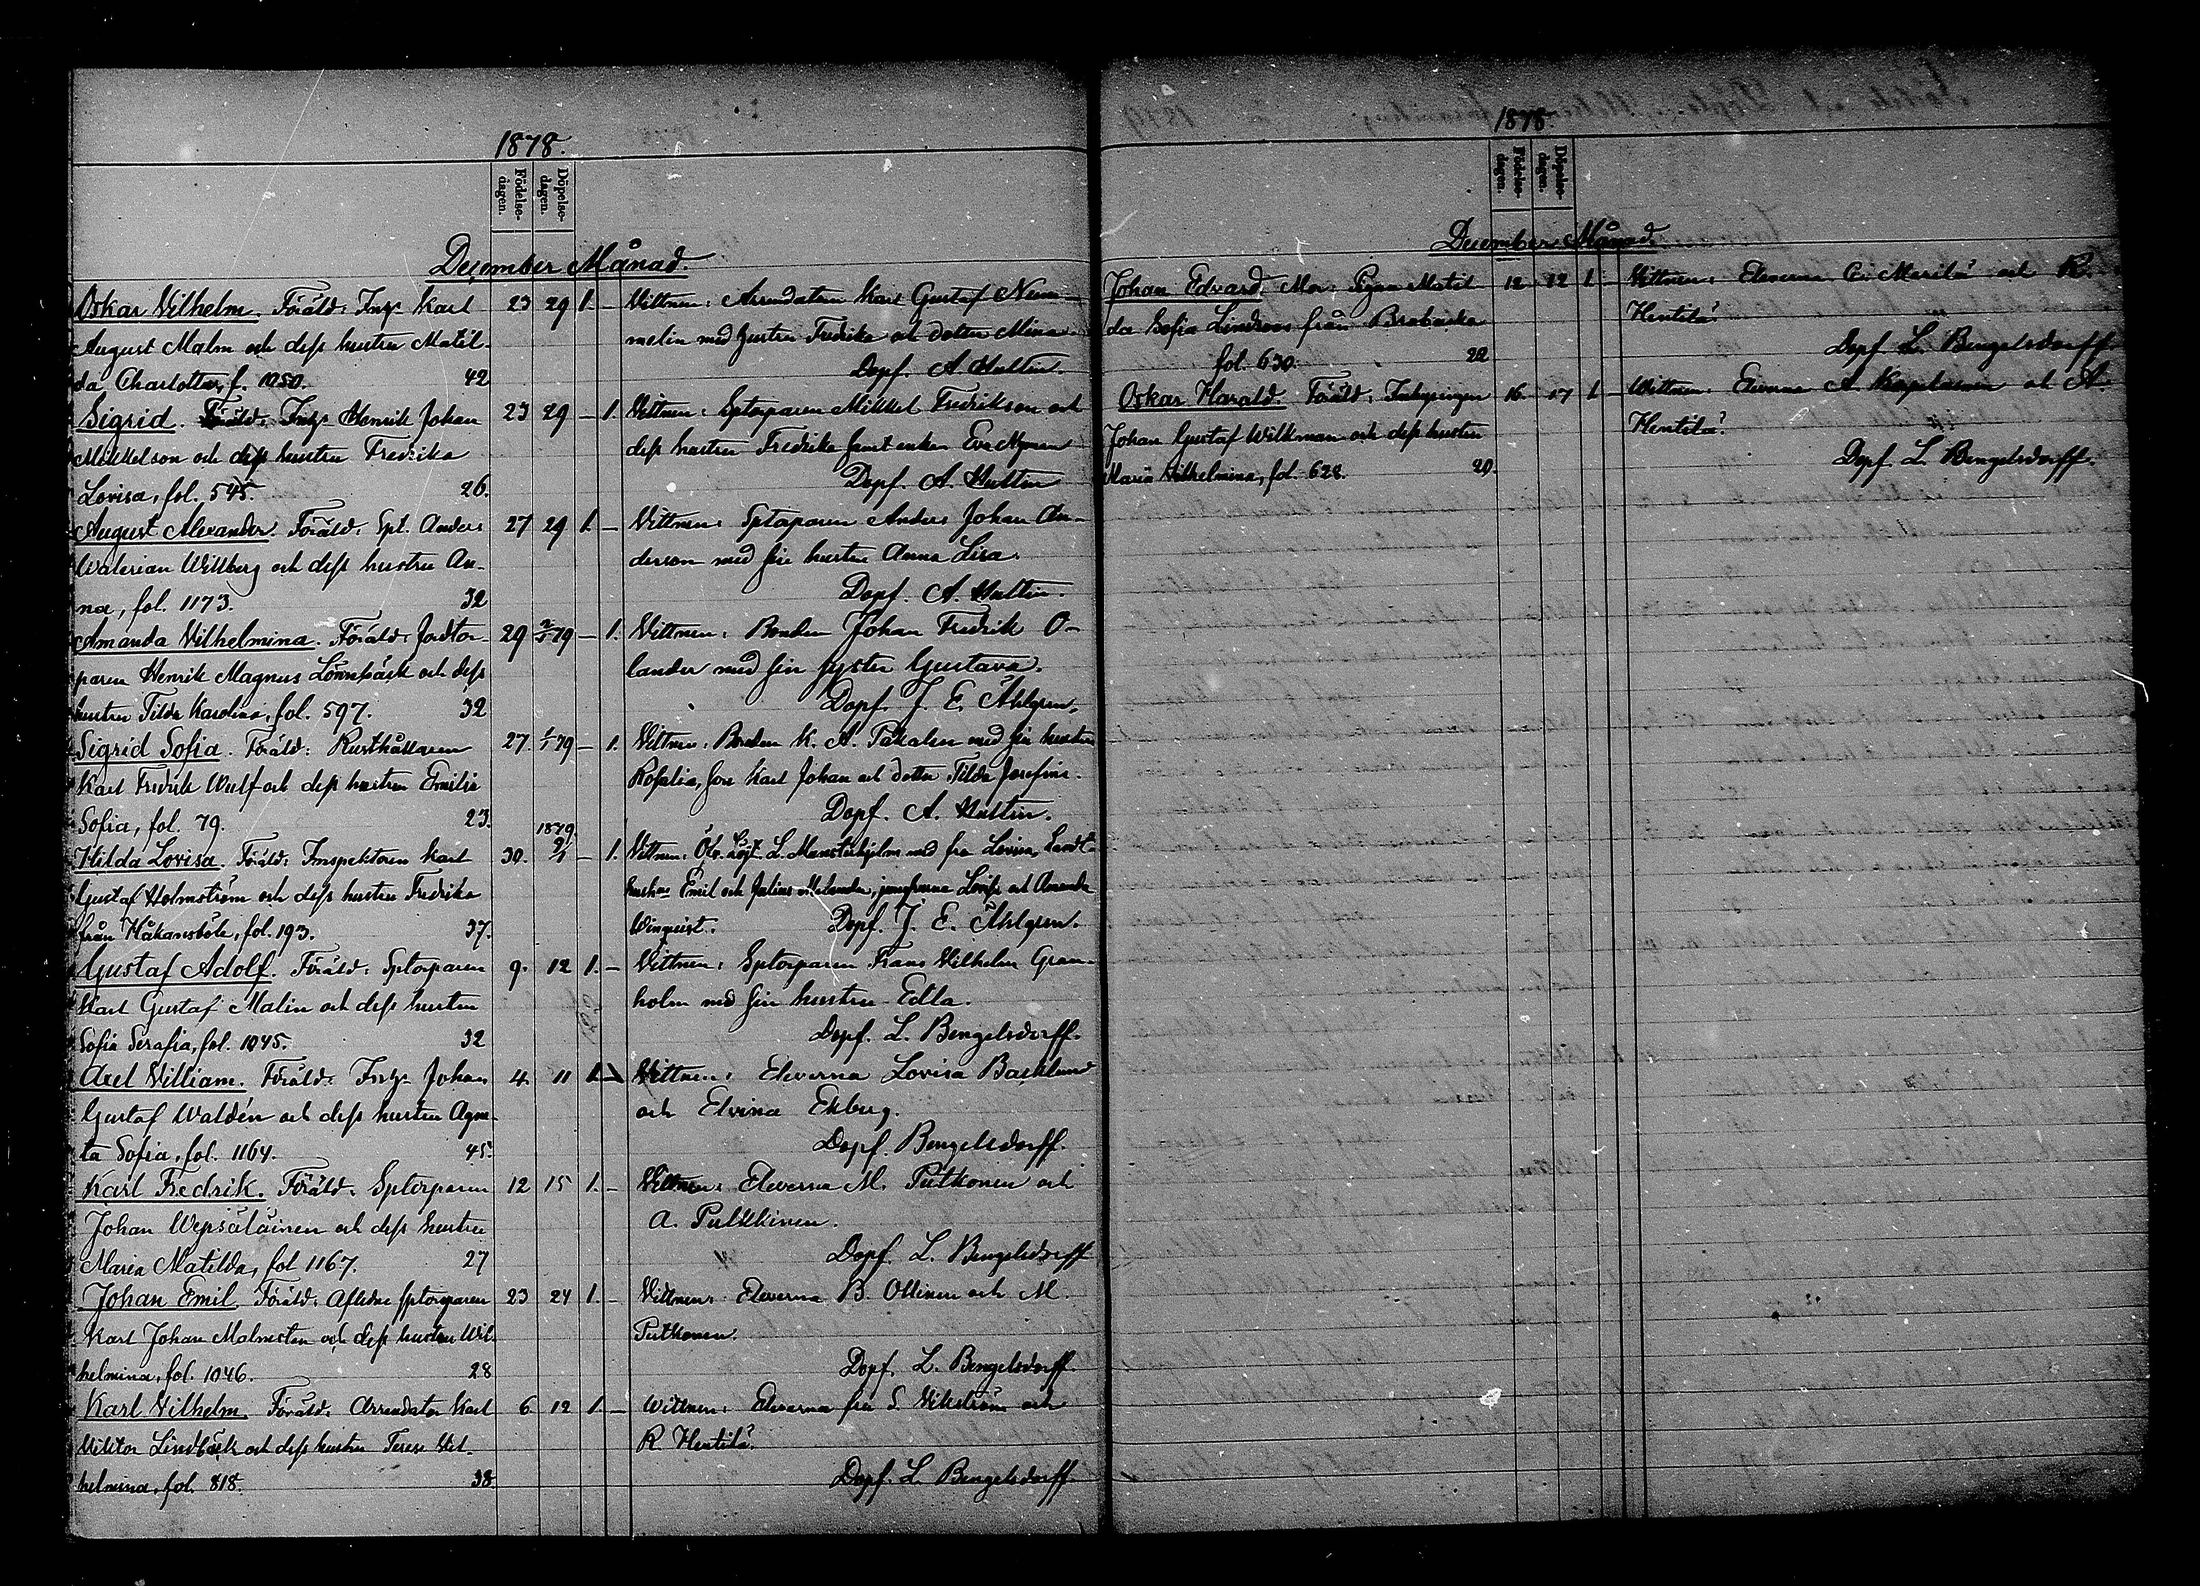 1878.
Födelse-
dagen.
Döpelse-
dagen.
December Månad.
Oskar Vilhelm. Föräld: Inhys Karl 23 29 1. — Vittnen: Arrendatorn Karl Gustaf Num-
August Malm och dess hustru Matil- melin med hustru Fredrika och dottern Mina
da Charlotta, f. 1050. 42 Dopf. A. Hultin.
Sigrid. Föräld: Inhys Henrik Johan 23 29 — 1. Vittnen: Sptorparen Mikkel Fredrikson och
Mikkelson och dess hustru Fredrika dess hustru Fredrika samt enkan Eva Nyman
Lovisa, fol. 545. 26. Dopf. A. Hultin
August Alexander. Föräld: Spt. Anders 27 29 1. — Vittnen: Sptorparen Anders Johan An-
Walerian Willberg och dess hustru An- derson med sin hustru Anna Lisa.
na, fol. 1173. 32 Dopf. A. Hultin.
Amanda Vilhelmina. Föräld: Jordtor- 29 79 — 1. Vittnen: Bonden Johan Fredrik O-
paren Henrik Magnus Lönnbäck och dess lander med sin syster Gustava.
hustru Tilda Karolina, fol. 597. 32 Dopf. J. E. Åhlgren.
Sigrid Sofia. Föräld: Rusthållaren 27. 79 — 1. Vittnen: Bonden K. A. med sin hustru
Karl Fredrik Wulf och dess hustru Emilia Rosalia, son Karl Johan och dotter Tilda Josefina.
Sofia, fol. 79. 23. Dopf. A. Hultin.
1879.
Hilda Lovisa. Föräld: Inspektoren Karl 30. — 1. Vittnen: L. med fru Lovisa, Landt-
Gustaf Holmström och dess hustru Fredrika Emil och Julius Melander, jungfrurna och Amanda
från Håkansböle, fol. 193. 37. Winqvist. Dopf. J. E. Åhlgren.
Gustaf Adolf. Föräld: Sptorparen 9. 12 1. — Vittnen: Sptorparen Frans Vilhelm Gran-
Karl Gustaf Malin och dess hustru holm med sin hustru Edla.
Sofia Serafia, fol. 1045. 32 Dopf. L. Bengelsdorff.
Axel William. Föräld: Inhys Johan 4. 11 1. Vittnen: Eleverna Lovisa Backlund
Gustaf Waldén och dess hustru Agne- och Elvina Ekberg.
ta Sofia, fol. 1164. 45. Dopf. Bengelsdorff.
Karl Fredrik. Föräld: Sptorparen 12 15 1. — Vittnen: Eleverna M. Putkonen och
Johan Wepsäläinen och dess hustru A. Pulkkinen.
Maria Matilda, fol 1167. 27 Dopf. L. Bengelsdorff
Johan Emil. Föräld: Aflidne sptorparen 23 24 1. — Vittnen: Eleverna B. Ollinen och M.
Karl Johan Malmsten och dess hustru Wil- Putkonen.
helmina, fol. 1046. 28 Dopf. L. Bengelsdorff.
Karl Vilhelm. Föräld: Arrendator Karl 6 12 1. — Wittnen: Eleverna fru S. Vikström och
Viktor Lindbäck och dess hustru Terese Vil- R. Hentilä.
helmina, fol. 818. 38. Dopf. L. Bengelsdorff
1878.
Födelse-
dagen.
Döpelse-
dagen.
December Månad.
Johan Edvard. Mor: Pigan Matil- 12 12 1. — Vittnen: Eleverna Marttila och R.
da Sofia Lindroos från Brobacka Hentilä.
fol. 630. 22 Dopf. L. Bengelsdorff
Oskar Harald. Föräld: Inhysingen 16 17 1. — Wittnen: Eleverna A. och A.
Johan Gustaf Wilkman och dess hustru Hentilä.
Maria Vilhelmina, fol. 628. 20. Dopf. L. Bengelsdorff.